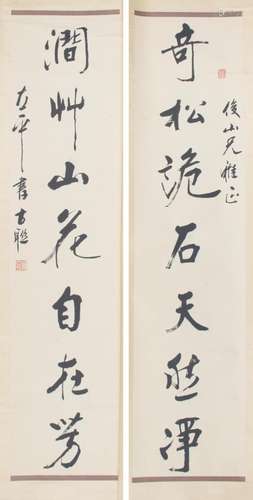 奇松詭石天然淨
俊山兄雅正
澗艸山花自在芳
左平書古聯